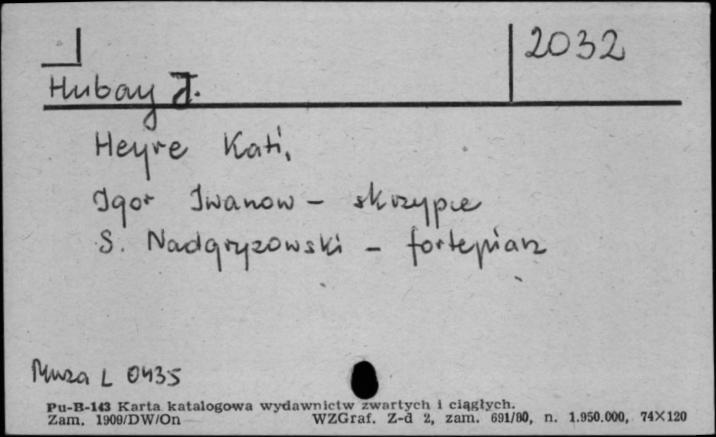 2032
Hubay J.
Heyre Kati,
Igor Iwanow - skrzypce
S. Nadgryzowski - fortepian
Muza L 0435
Pu-B-143 Karta katalogowa wydawnictw zwartych i ciągłych.
Zam. 1909/DW/On WZGraf. Z-d 2, zam. 691/80, n. 1.950.000, 74X120